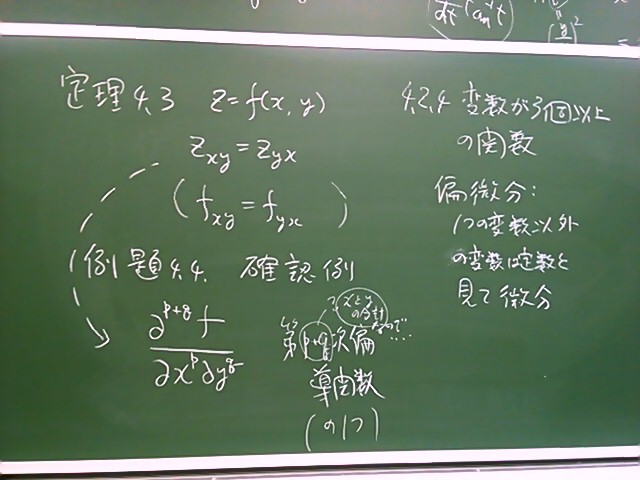 定理4.3 z=f(x,y)
z_xy = z_yx
(f_xy = f_yx)
例題4.4. 確認例
∂^{p+q} f
∂x^p ∂y^q
xとy
の合計
なので‥‥
第p+q次偏
導関数
(の1つ)
4.2.4 変数が3個以上
の関数
偏微分:
1つの変数以外
の変数は定数と
見て微分